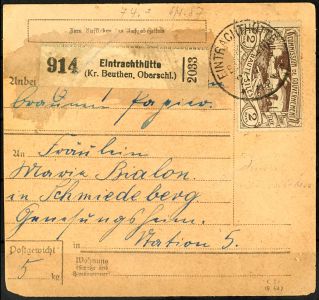 Zum Aufkleben des Aufgabezettels
914 Eintrachthütte
(Kr. Beuthen, Oberschl.) 2033
EINTRACHTHÜTTE
2
Anbei
braunem Papier
An Fräulein
Marie Bialon
in Schmiedeberg
Genesungsheim
Station 5.
Postgewicht
5 kg
Wohnung